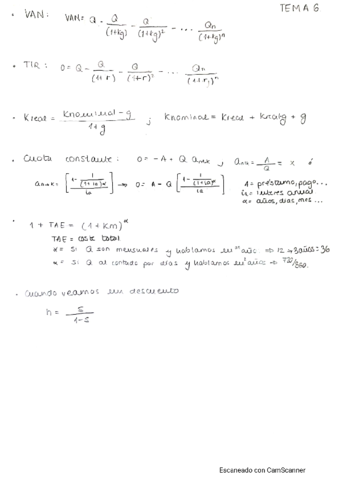 TEMA 6
· VAN: VAN = Q - Q/(1+kg) - Q/(1+kg)² - ... Qn/(1+kg)ⁿ
· TIR: 0 = Q - Q/(1+r) - Q/(1+r)² - ... Qn/(1+r)ⁿ
· Kreal = Knominal - g / 1+g ; Knominal = Kreal + Kreal g + g
· Cuota constante: 0 = -A + Q an¬k ; an¬k = A/Q = x
A = préstamo, pago...
= interes anual
α = años, días, mes...
· 1 + TAE = (1 + Km)^α
TAE = coste total
α = si Q son mensuales y hablamos en años ⇒ 12 → 3años = 36
α = si Q al contado por días y hablamos en años ⇒ 720/360
· Cuando veamos un descuento
h = s/1-s
Escaneado con CamScanner